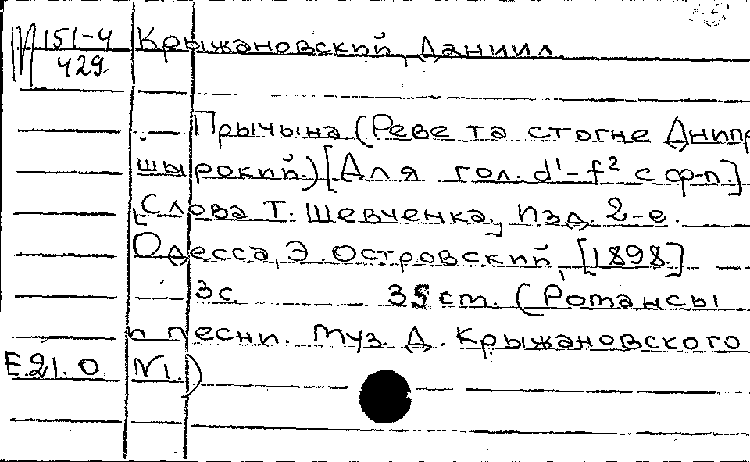 М 151-4 Крыжановский, Даниил.
429
Прычына (Реве та стогне Днипр
шырокий.) [Для гол. d'-f² с ф-п.]
Слова Т. Шевченка, Изд. 2-е.
Одесса, Э. Островский, [1898.]
3с 35 cm. (Романсы
и песни. Муз. Д. Крыжановского
Е.21.0 №1.)